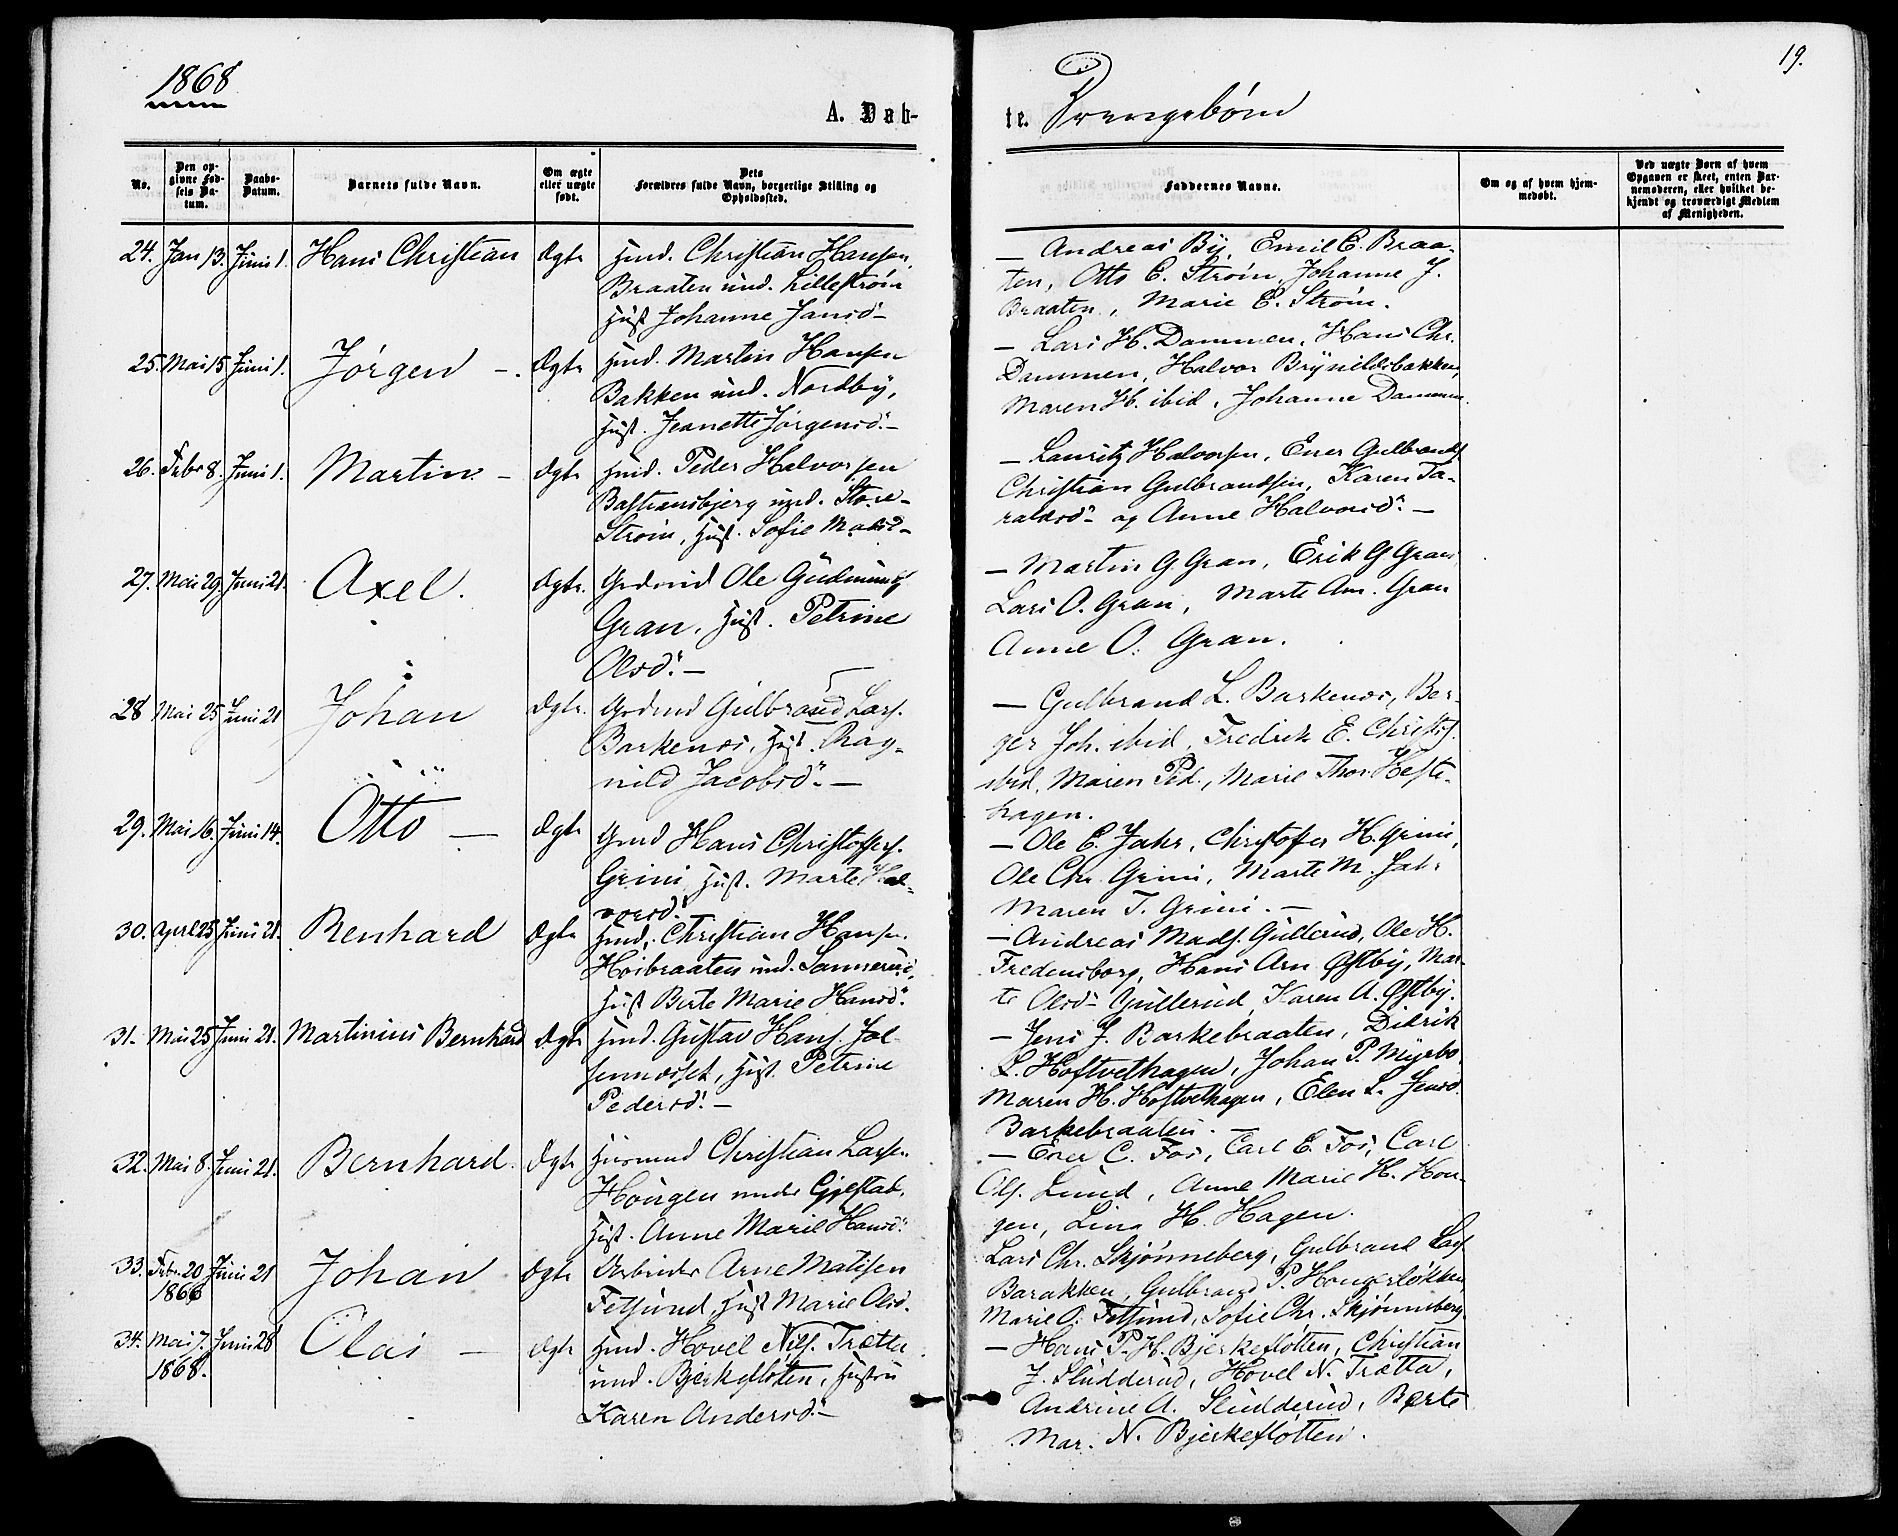 1868
19.
A. Døb-
te. Drengebørn
No.
Den op-
givne Fød-
sels Da-
tum.
Daabs-
Datum.
Barnets fulde Navn.
Om ægte
eller uægte
født.
Dets
Forældres fulde Navn, borgerlige Stilling og
Opholdssted.
Faddernes Navne.
Om og af hvem hjem-
medøbt.
Ved uægte Børn af hvem
Opgaven er skeet, enten Bar-
nemoderen, eller hvilket be-
kjendt og troværdigt Medlem
af Menigheden.
24. Jan 13. Juni 1. Hans Christian Ægte Husmd. Christian Hansen
Braaten und. Lillestrøm
Hust Johanne Jansd. –
– Andreas By, Emil E. Braa-
ten, Otto E. Strøm, Johanne J.
Braaten, Marie E. Strøm.
25. Mai 15 Juni 1. Jørgen –. Ægte Husmd. Martin Hansen
Bakken und. Nordby,
Hust. Jeanette Jørgensd. –
– Lars H. Dammen, Hans Chr.
Dammen, Halvor Brynildsbakken,
Maren H. ibid, Johanne Dammen.
26. Febr 8. Juni 1. Martin – Ægte Husmd. Peder Halvorsen
Bastiansbjerg und. Store-
Strøm, Hust. Sofie Matsd –
– Lauritz Halvorsen, Ener Gulbrands.
Christian Gulbrandsen, Karen Ta-
raldsd. og Anne Halvorsd. –
27. Mai 29. Juni 21. Axel. Ægte. Grdmnd Ole Gudmunds.
Gran, Hust. Petrine
Olsd. –
– Martin G. Gran, Erik G Gran
Lars O. Gran, Marte Am. Gran
Anne O. Gran.
28 Mai 25 Juni 21 Johan Ægte. Grdmd Gulbrand Lars.
Barkenæs, Hust Rag-
nild Jacobsd. –
– Gulbrand L. Barkenæs, Ber-
ger Joh. ibid, Fredrik E. Christs.
ibid, Maren Ped., Marie Thor. Hefte-
hagen.
29. Mai 16. Juni 14. Otto – Ægte Grmd Hans Christoffers.
Grini, Hust. Marte Hal-
vorsd.
– Ole E. Jahr, Christoffer H. Grini,
Ole Chr. Grini, Marte M. Jahr
Maren T. Grini. –
30. April 25 Juni 21. Renhard Ægte Husmd. Christian Hansen
Høibraaten und. Sannerud,
Hust Berte Marie Hansd.
– Andreas Mads. Gullerud, Ole H.
Fredensborg, Hans Arn Østby, Mar-
te Olsd. Gullerud, Karen A. Østby.
31. Mai 25 Juni 21. Martinius Bernhard Ægte Husmd. Gustav Hans. Jol-
sennæsset, Hust. Petrine
Pedersd. –
– Jens J. Barkebraaten, Didrik
L. Hoftvethagen, Johan P. Myrbo
Maren H. Hoftvethagen, Elen L. Jensd
Barkebraaten.
32. Mai 8. Juni 21. Bernhard. Ægte Husmand Christian Larsen
Hougen under Gjestad,
Hust. Anne Marie Hansd.
– Ener C. Fos, Carl E. Fos, Carl
Ols. Lund, Anne Marie H. Hou-
gen, Lina H. Hagen.
33. Febr. 20 Juni 21 Johan Ægte Arbeider Arne Matisen
1868
Fetsund, Hust Marie Olsd.
Lars Chr. Skjønneberg, Gulbrand Lars
Barakken, Gulbrand P. Hougerløkken
Marie O. Fetsund, Sofie Chr. Skjønneberg
34. Mai 7. Juni 28 Olai – Ægte Husmd. Hovel Nils. Trætta
1868.
und. Bjerkefloten, Hustru
Karen Andersd. –
– Hans P. H. Bjerkeflotten, Christian
J. Sludderud, Hovel N. Trætta,
Andrine A. Sludderud, Berte
Mar. N. Bjerkeflotten.